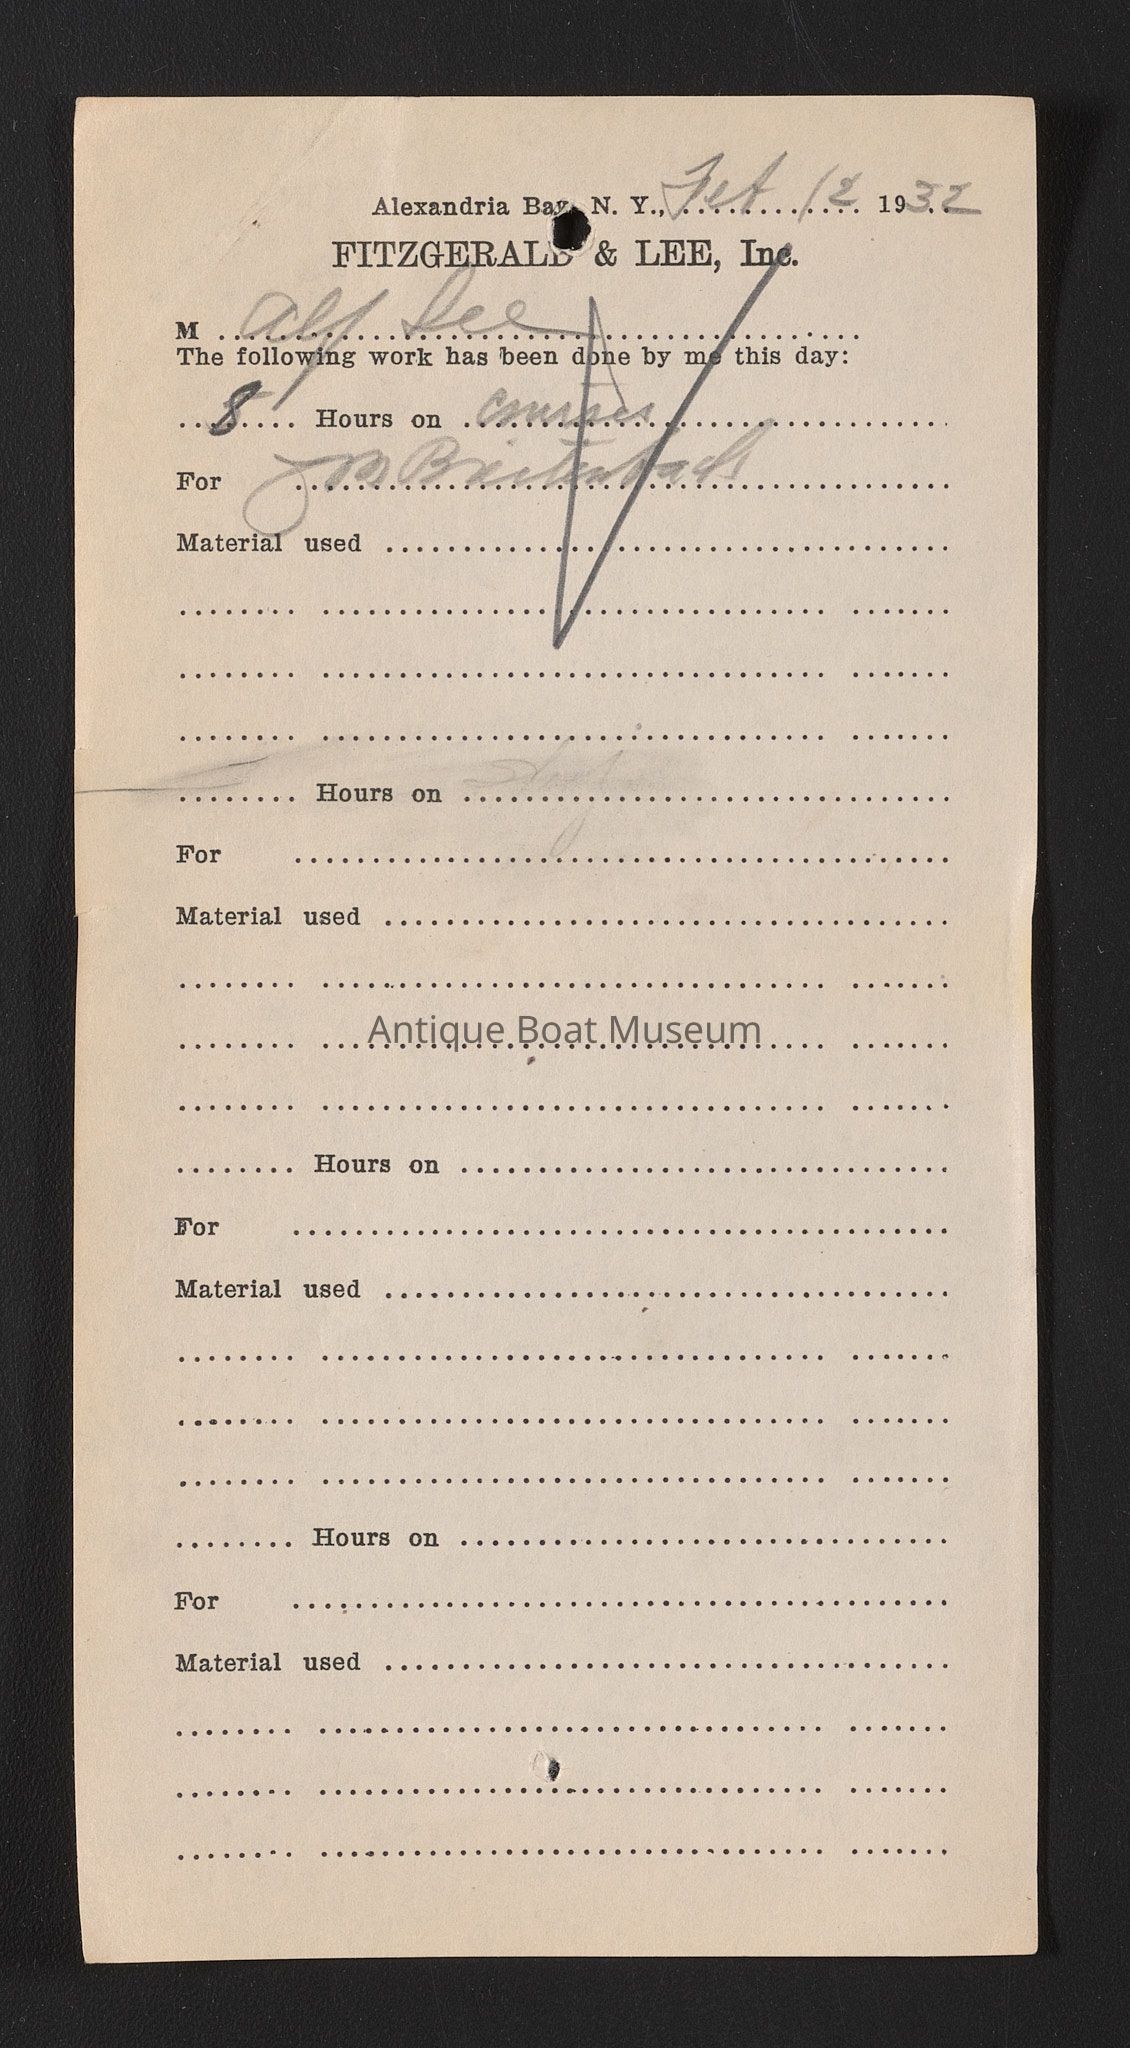 Alexandria Bay, N. Y., Feb 12 1932
FITZGERALD & LEE, Inc.
M Alf Lee
The following work has been done by me this day:
8 Hours on cruiser
For Breitenbach
Material used
Hours on
For
Material used
Antique Boat Museum
Hours on
For
Material used
Hours on
For
Material used